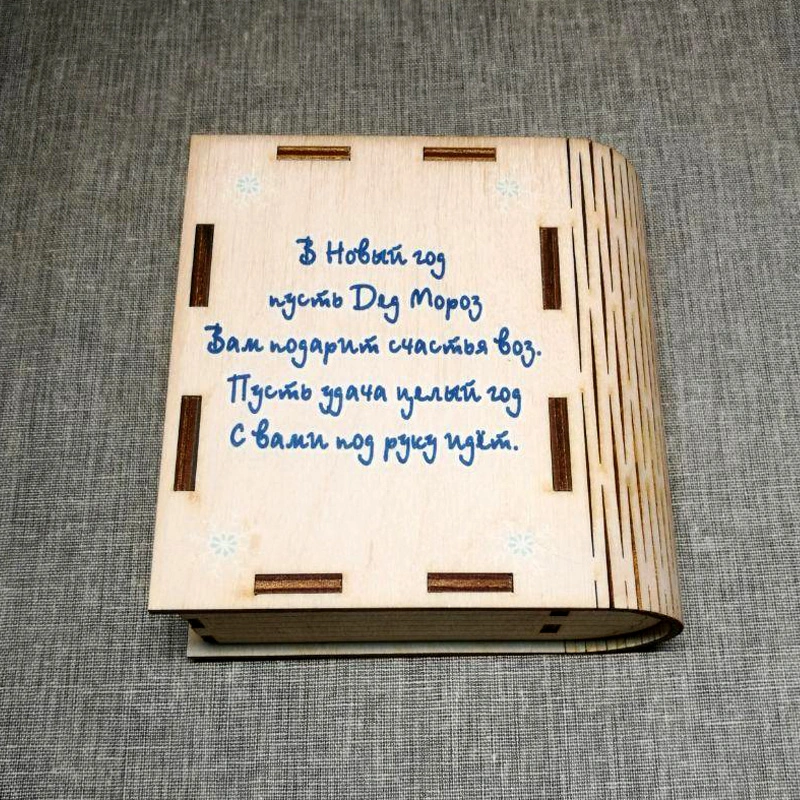 В Новый год
пусть Дед Мороз
Вам подарит счастья воз.
Пусть удача целый год
С вами под руку идёт.